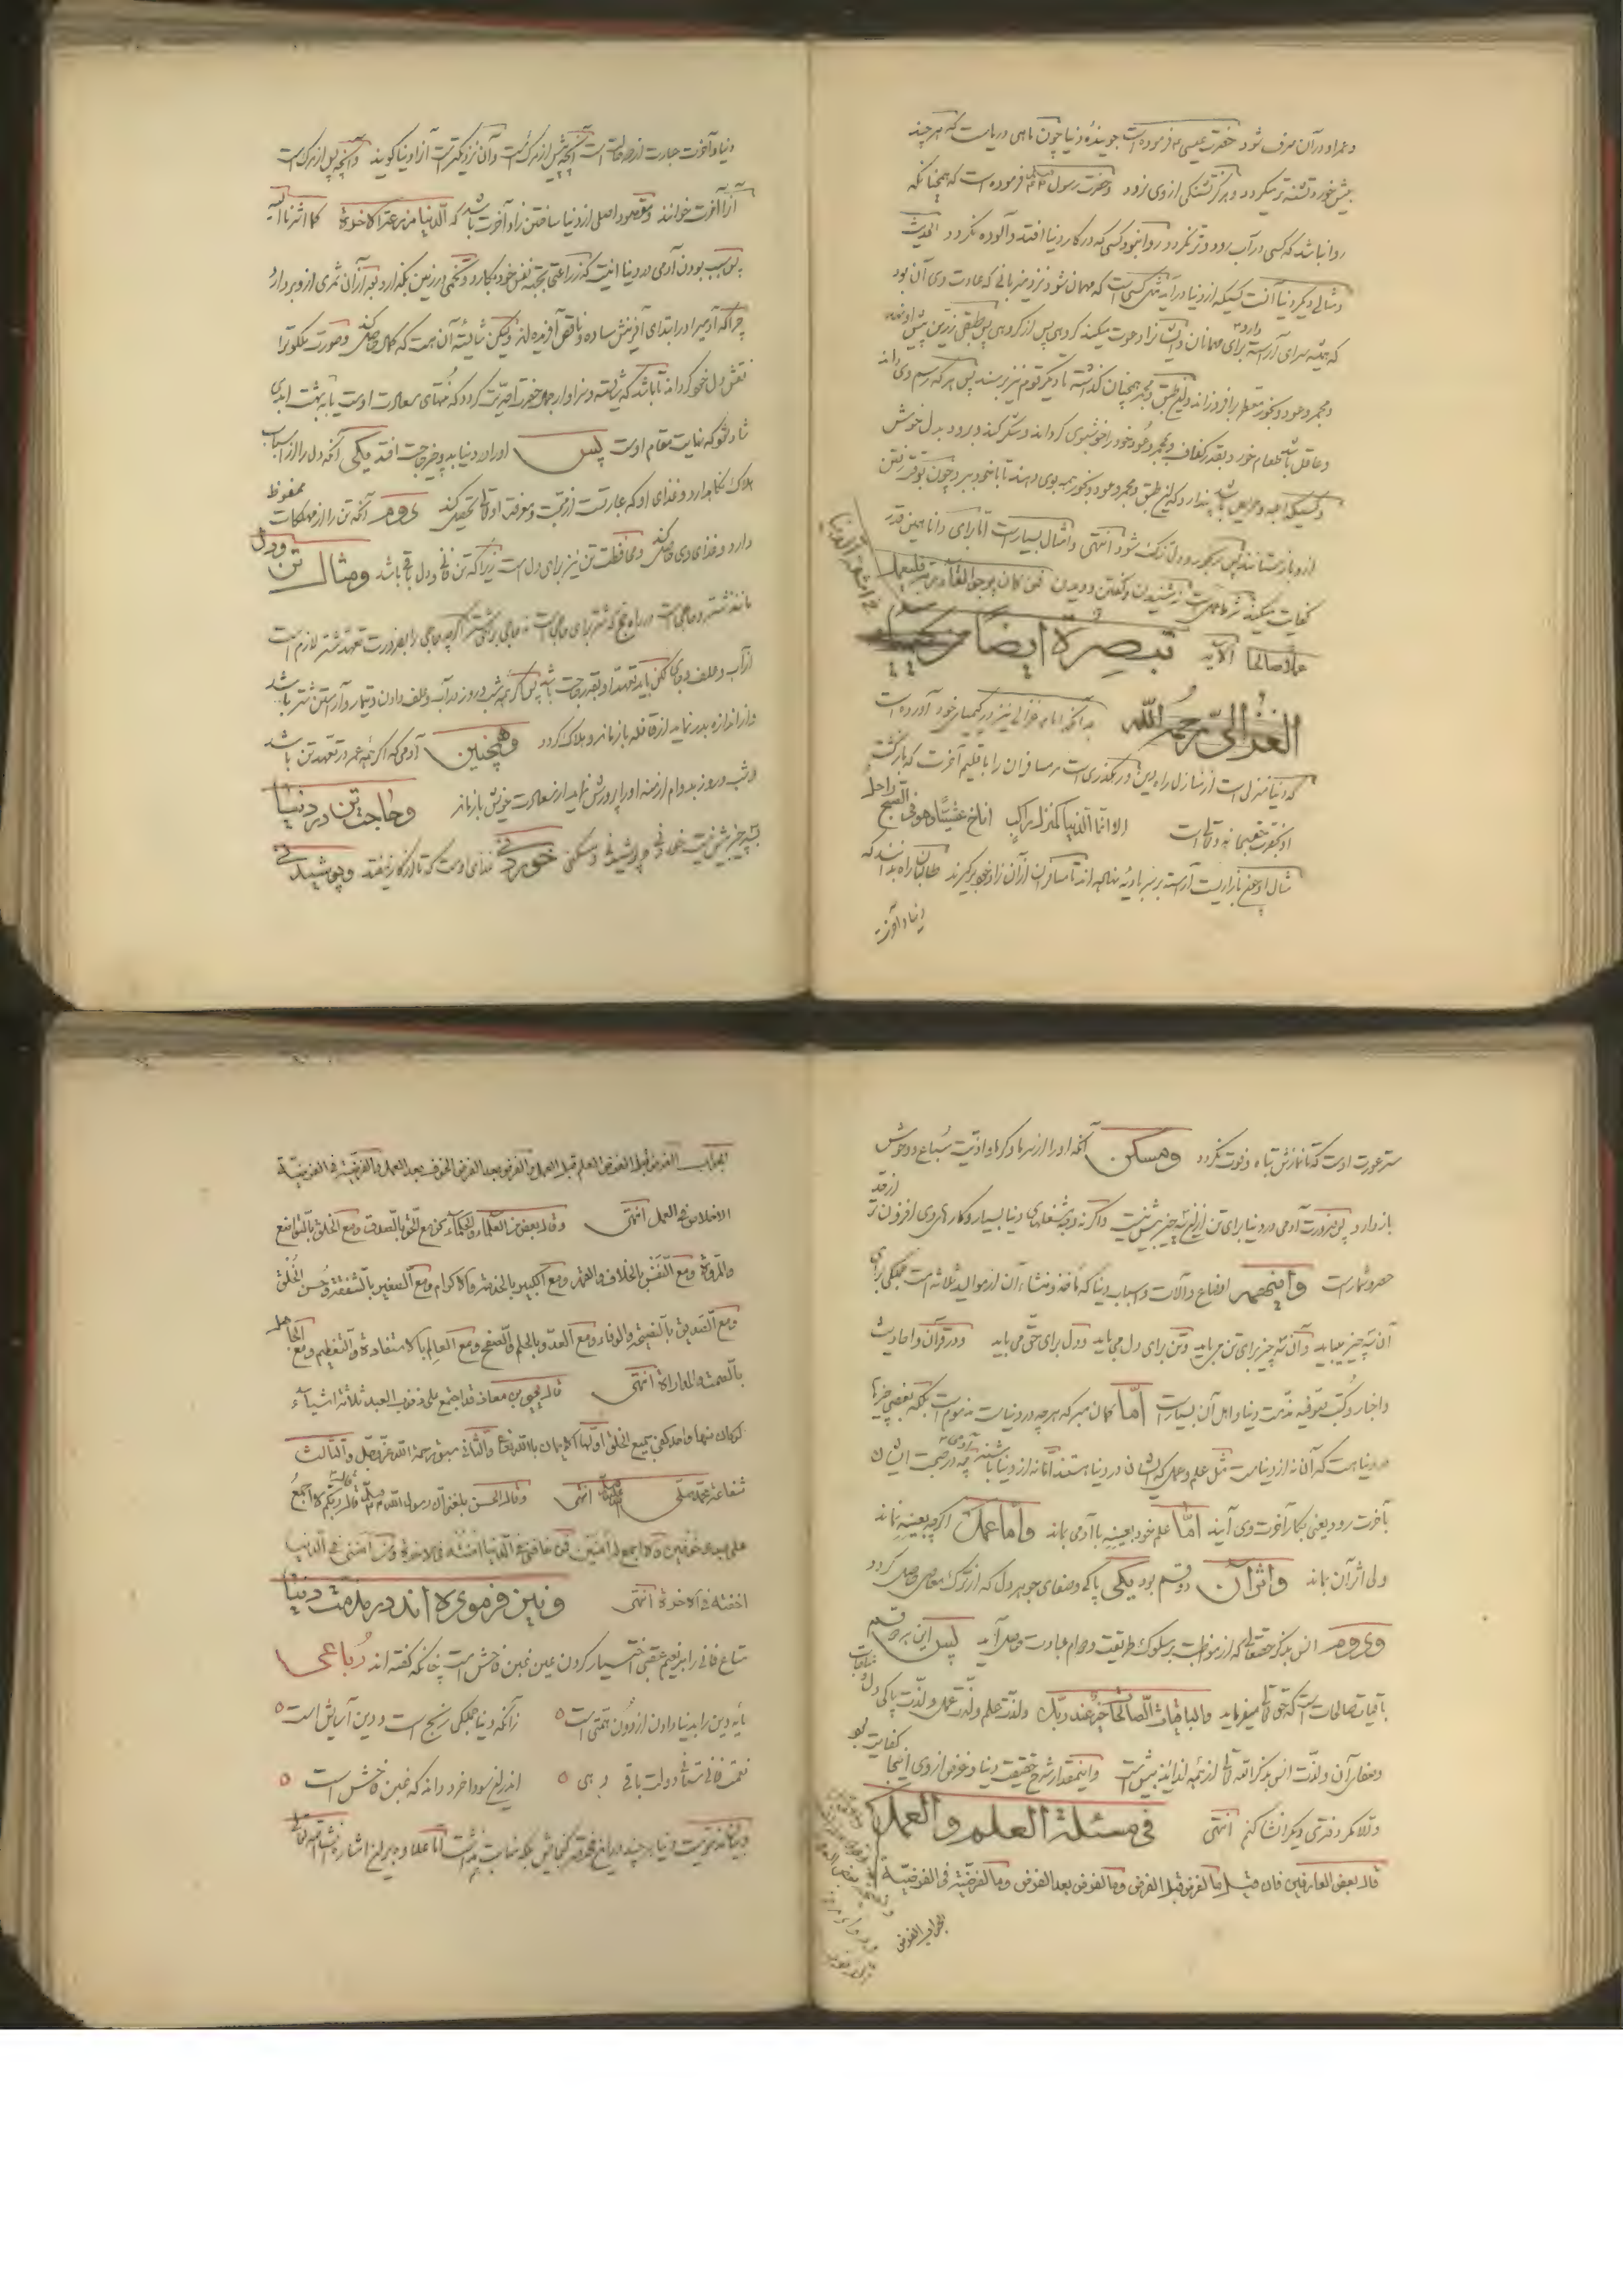 و عمر او در آن صرف شود حضرت عیسی ع فرموده است جوینده دنیا چون ماهی دریاست که هر چند
بیش خورد تشنه تر میگردد و هرگز تشنگی از وی نرود و حضرت رسول فرموده است که همچنانکه
روا نباشد که کسی در آب رود و تر نگردد روا نبود کسی که در کار دنیا افتد و آلوده نگردد الحدیث
و مثالی دیگر دنیا آنست کسیکه از دنیا در آید مثل کسی است که مهمان شود نزد میزبانی که عادت وی آن بود
که همیشه سرای آراسته دارد برای مهمانان و ایشانرا دعوت میکند گروهی پس از گروهی پس طبقی زرین پیش او نهد
و مجمر و عود و بخور معطر بر افروزاند و این طبق و مجمر همچنان گذاشته تا دیگر قوم نیز برسند پس هر که رسم وی داند
و عاقل باشد طعام خورد بقدر کفاف و بمجمر و عود خود را خوشبوی گرداند و شکر کند و برود بدل خوش
و کسیکه ابله و حریص باشد پندارد که این طبق و مجمر و عود و بخور همه بوی دهند تا با خود ببرد چون بوقت رفتن
ازو باز ستانند پس رنجور و دل تنگ شود انتهی و امثال بسیار است اما برای دانا همین قدر
کفایت میکند شنیدن و گفتن و دویدن فمن کان یرجو لقاء ربه فلیعمل
عملا صالحا الآیه تبصرة ایضا
الغزالی رحمه الله بدانکه امام غزالی نیز در کیمیای خود آورده است
که دنیا منزلی است از منازل راه دین و رهگذری است مر مسافران را باقلیم آخرت که بازگشت
الا و انما الدنیا کمنزل راکب اناخ عشیا و هو فی الصبح راحل
مثال او همچو بازاریست آراسته بر سر بادیه نهاده اند تا مسافران از آن زاد خود برگیرند طالبان راه بدانند که
دنیا و آخرت
دنیا و آخرت عبارت از دو حالت است آنچه پیش از مرگ است و آن نزدیکتر است آنرا دنیا گویند و آنچه پس از مرگ است
آنرا آخرت خوانند و مقصود اصلی از دنیا ساختن زاد آخرت باشد که الدنیا مزرعة الآخرة
پس سبب بودن آدمی در دنیا اینست که زراعتی بجهة نفس خود بکارد و تخمی در زمین بگذارد بعد از آن ثمری ازو بر دارد
چرا که آدمیرا در ابتدای آفرینش ساده و ناقص آفریده اند ولیکن شایسته آن هست که کمال حاصل کند و صورت ملکوت را
نقش دل خود گرداند تا باشد که شایسته و سزاوار جمال حضرت احدیت گردد که منتهای سعادت اوست یا به بهشت ابدی
شاد شود که نهایت مقام اوست پس او را در دنیا بدو چیز حاجت افتد یکی آنکه دل را از اسباب
هلاک نگاه دارد و غذای او که عبارتست از محبت و معرفت او تعالی تحصیل کند دوم آنکه تن را از مهلکات محفوظ
دارد و غذای وی حاصل کند و محافظت تن نیز برای دل است زیرا که تن فانی و دل باقی باشد ومثال تن ودل
مانند شتر و حاجی است در راه حج که شتر برای حاجی است نه حاجی برای شتر اگر چه حاجی را بضرورت تعهد شتر لازم است
از آب و علف و جای لیکن باید تعهد او بقدر حاجت باشد پس اگر همه شب و روز در آب و علف دادن و تیمار و آراستن شتر باشد
و از اندازه بدر نماید از قافله باز ماند و هلاک گردد وهمچنین آدمی که اگر همه عمر در تعهد تن باشد
و شب و روز بدوام ازمنه او را پرورش نماید از سعادت خویش باز ماند وحاجت تن در دنیا
به سه چیز بیش نیست خوردنی و پوشیدنی و مسکن خوردنی غذای اوست که تا از کار نیفتد وپوشیدنی
ستر عورت اوست که تا نمازش تباه و فوت نگردد ومسکن آنکه او را از سرما و گرما و اذیت سباع و وحوش
باز دارد پس ضرورت آدمی در دنیا برای تن از این سه چیز بیش نیست و اگر نه وجه شغلهای دنیا بسیار و کارهای وی افزون تر از حد
حصر و شمار است واینهمه اوضاع و آلات و اسباب دنیا که مأخذ و منشاء آن از موالید ثلاثه است جملگی برای
آن سه چیز میباید و آن سه چیز برای تن می باید و تن برای دل می باید و دل برای حق می باید و در قرآن و احادیث
و اخبار و کتب صوفیه مذمت دنیا و اهل آن بسیار است اما گمان مبر که هر چه در دنیاست مذموم است بلکه بعضی چیزها
در دنیا هست که آن نه از دنیاست مثل علم و عمل که ایشان در دنیا هستند اما نه از دنیا باشند چه در صحبت ایشان
بآخرت رود یعنی بکار آخرت وی آیند اما علم خود بعینه با آدمی بماند واما عمل اگر چه بعینه نماند
ولی اثر آن بماند واثر آن دو قسم بود یکی پاکی و صفای جوهر دل که از ترک معاصی حاصل گردد
ودوم انس بذکر حقتعالی که از مواظبت بر سلوک طریقت و دوام عبادت حاصل آید پس این هر دو قسم
باقیات صالحات است که حق تعالی میفرماید والباقیات الصالحات خیر عند ربک و لذت علم و لذت عمل و لذت پاکی دل
و صفای آن و لذت انس بذکر الله تعالی از همه لذایذ بیش است و اینمقدار شرح حقیقت دنیا و غرض از وی اینجا کفایت بود
والا مگر دفتری دیگر انشا کنم انتهی فی مسئلة العلم والعمل
قال بعض العارفین فان قیل ما الفرض قبل الفرض وما الفرض بعد الفرض وما الفریضة فی الفریضة
الجواب الفرض
الجواب الفرض قبل الفرض العلم قبل العمل والفرض بعد الفرض الخوف بعد العمل والفریضة فی الفریضة
الاخلاص فی العمل انتهی وقال بعض من العلماء والحکماء کن مع الحق بالصدق ومع الخلق بالتواضع
والمروة ومع النفس بالخلاف والقهر ومع الکبیر بالخدمة والاکرام ومع الصغیر بالشفقة وحسن الخلق
ومع الصدیق بالنصیحة والوفاء ومع العدو بالحلم والصفح ومع العالم بالاستفادة والتعظیم ومع الجاهل
بالصمت والمداراة انتهی قال یحیی بن معاذ قد اجتمع علی ذنوب العبد ثلاثة اشیاء
لو کان منها واحد کفی بجمیع الخلق اولها الایمان بالله تعالی والثانی سبق رحمة الله عز وجل والثالث
شفاعة محمد صلی انتهی وقال الحسن بلغنی ان رسول الله قال قال ربکم لا اجمع
علی عبدی خوفین ولا اجمع له امنین فمن خافنی فی الدنیا امنته فی الاخرة ومن امننی فی الدنیا
اخفته فی الاخرة انتهی ونیز فرموده اند در مذمت دنیا
متاع فانی را بر نعیم عقبی اختیار کردن عین غبن فاحش است چنانکه گفته اند رباعی
مایه دین را بدنیا دادن از دون همتی است زانکه دنیا جملگی رنج است و دین آسایش است
نعمت فانی ستانی دولت باقی دهی اندرین سودا خرد داند که غبن فاحش است